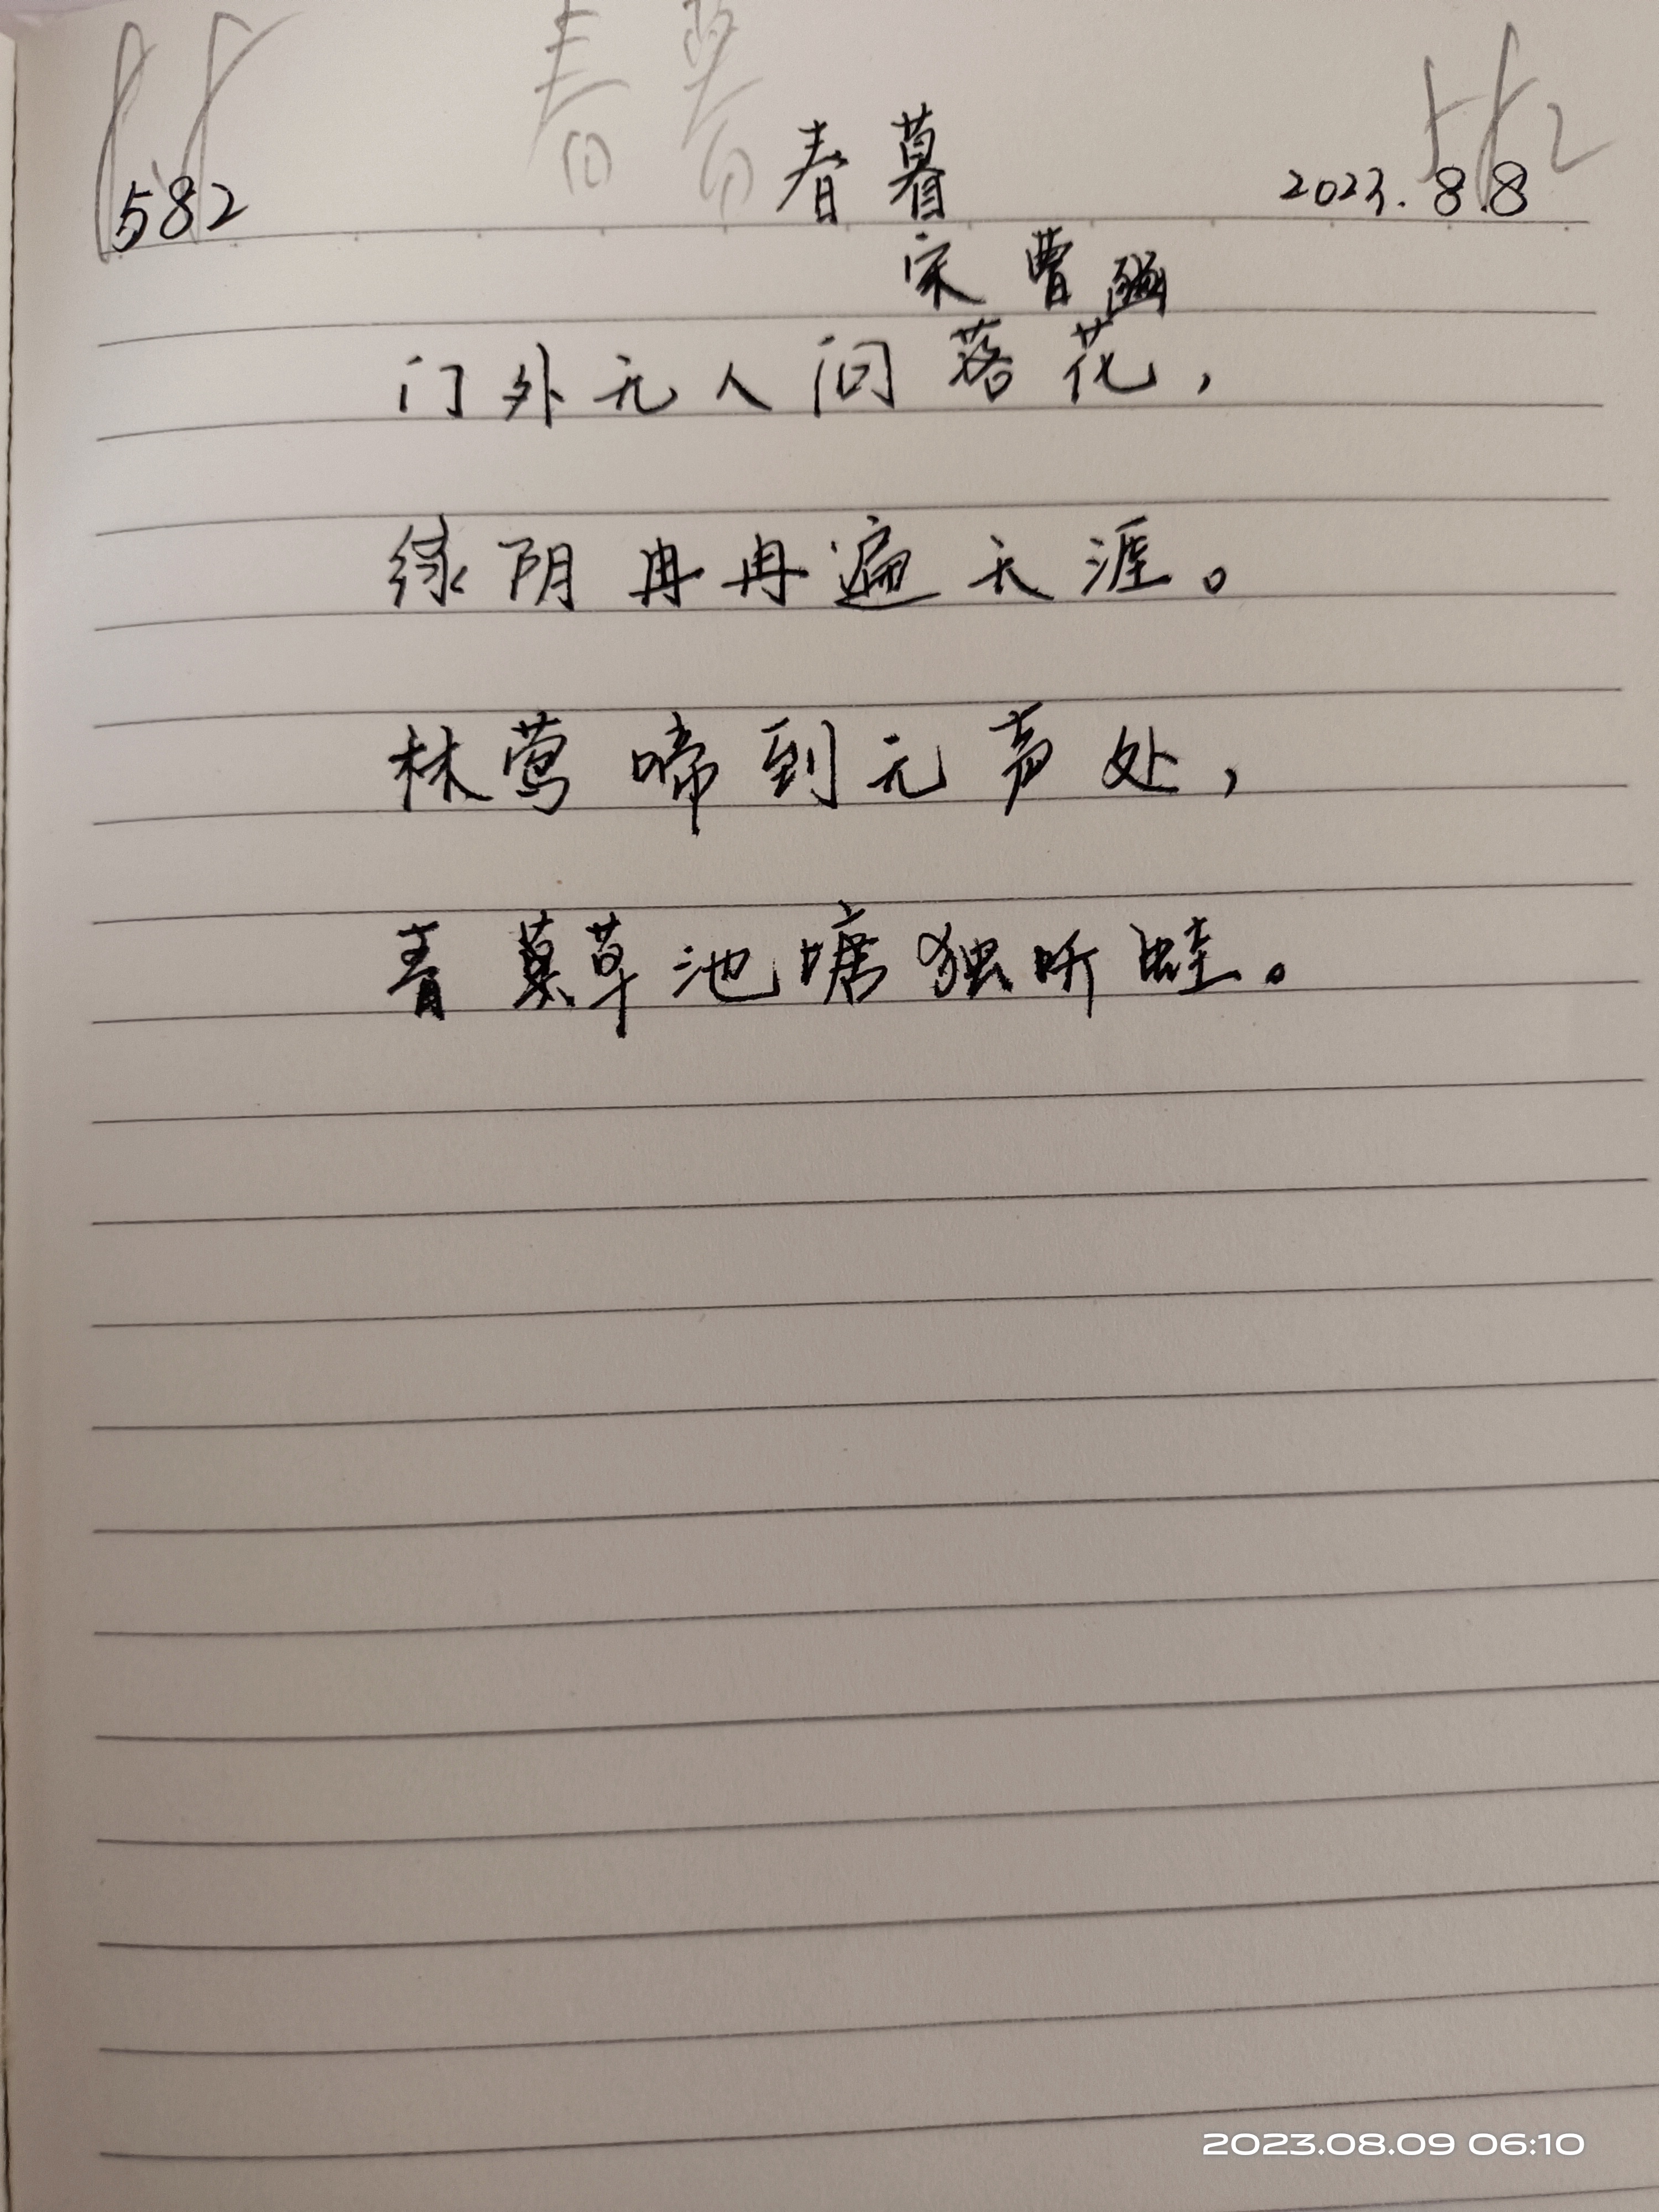 春暮
582 春暮 2023.8.8
宋 曹豳
门外无人问落花，
绿阴冉冉遍天涯。
林莺啼到无声处，
青草池塘独听蛙。
2023.08.09 06:10